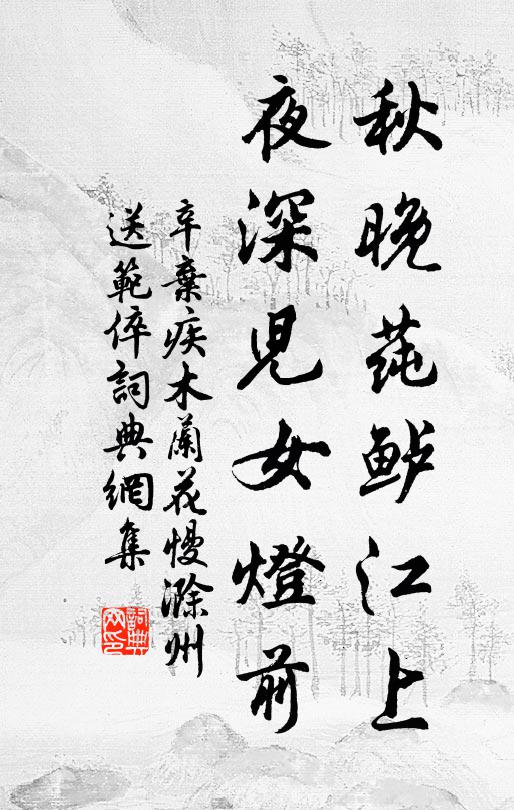 秋晚莼鲈江上
夜深児女燈前
辛棄疾木蘭花慢滁州
送範倅詞典網集
詞典
网印